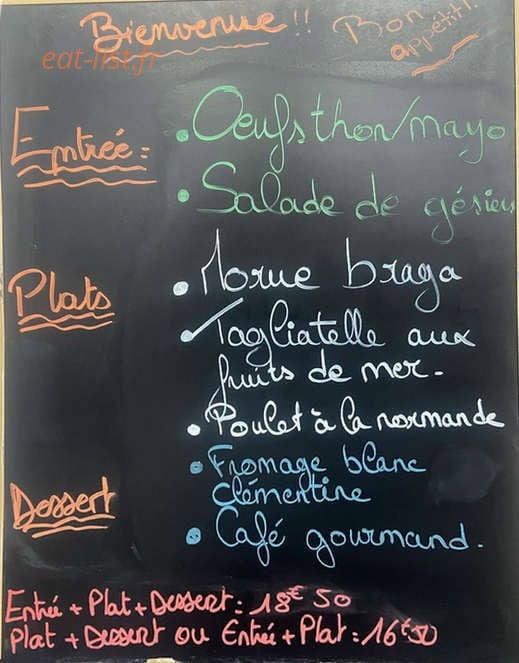 Bienvenue !!
Bon appétit!
eat-list.fr
Entrée :
• Oeufs thon/mayo
• Salade de gésiers
Plats
• Morue braga
• Tagliatelle aux
fruits de mer.
• Poulet à la normande
Dessert
• Fromage blanc
clémentine
• Café gourmand.
Entrée + Plat + Dessert : 18€ 50
Plat + Dessert ou Entrée + Plat : 16€ 50